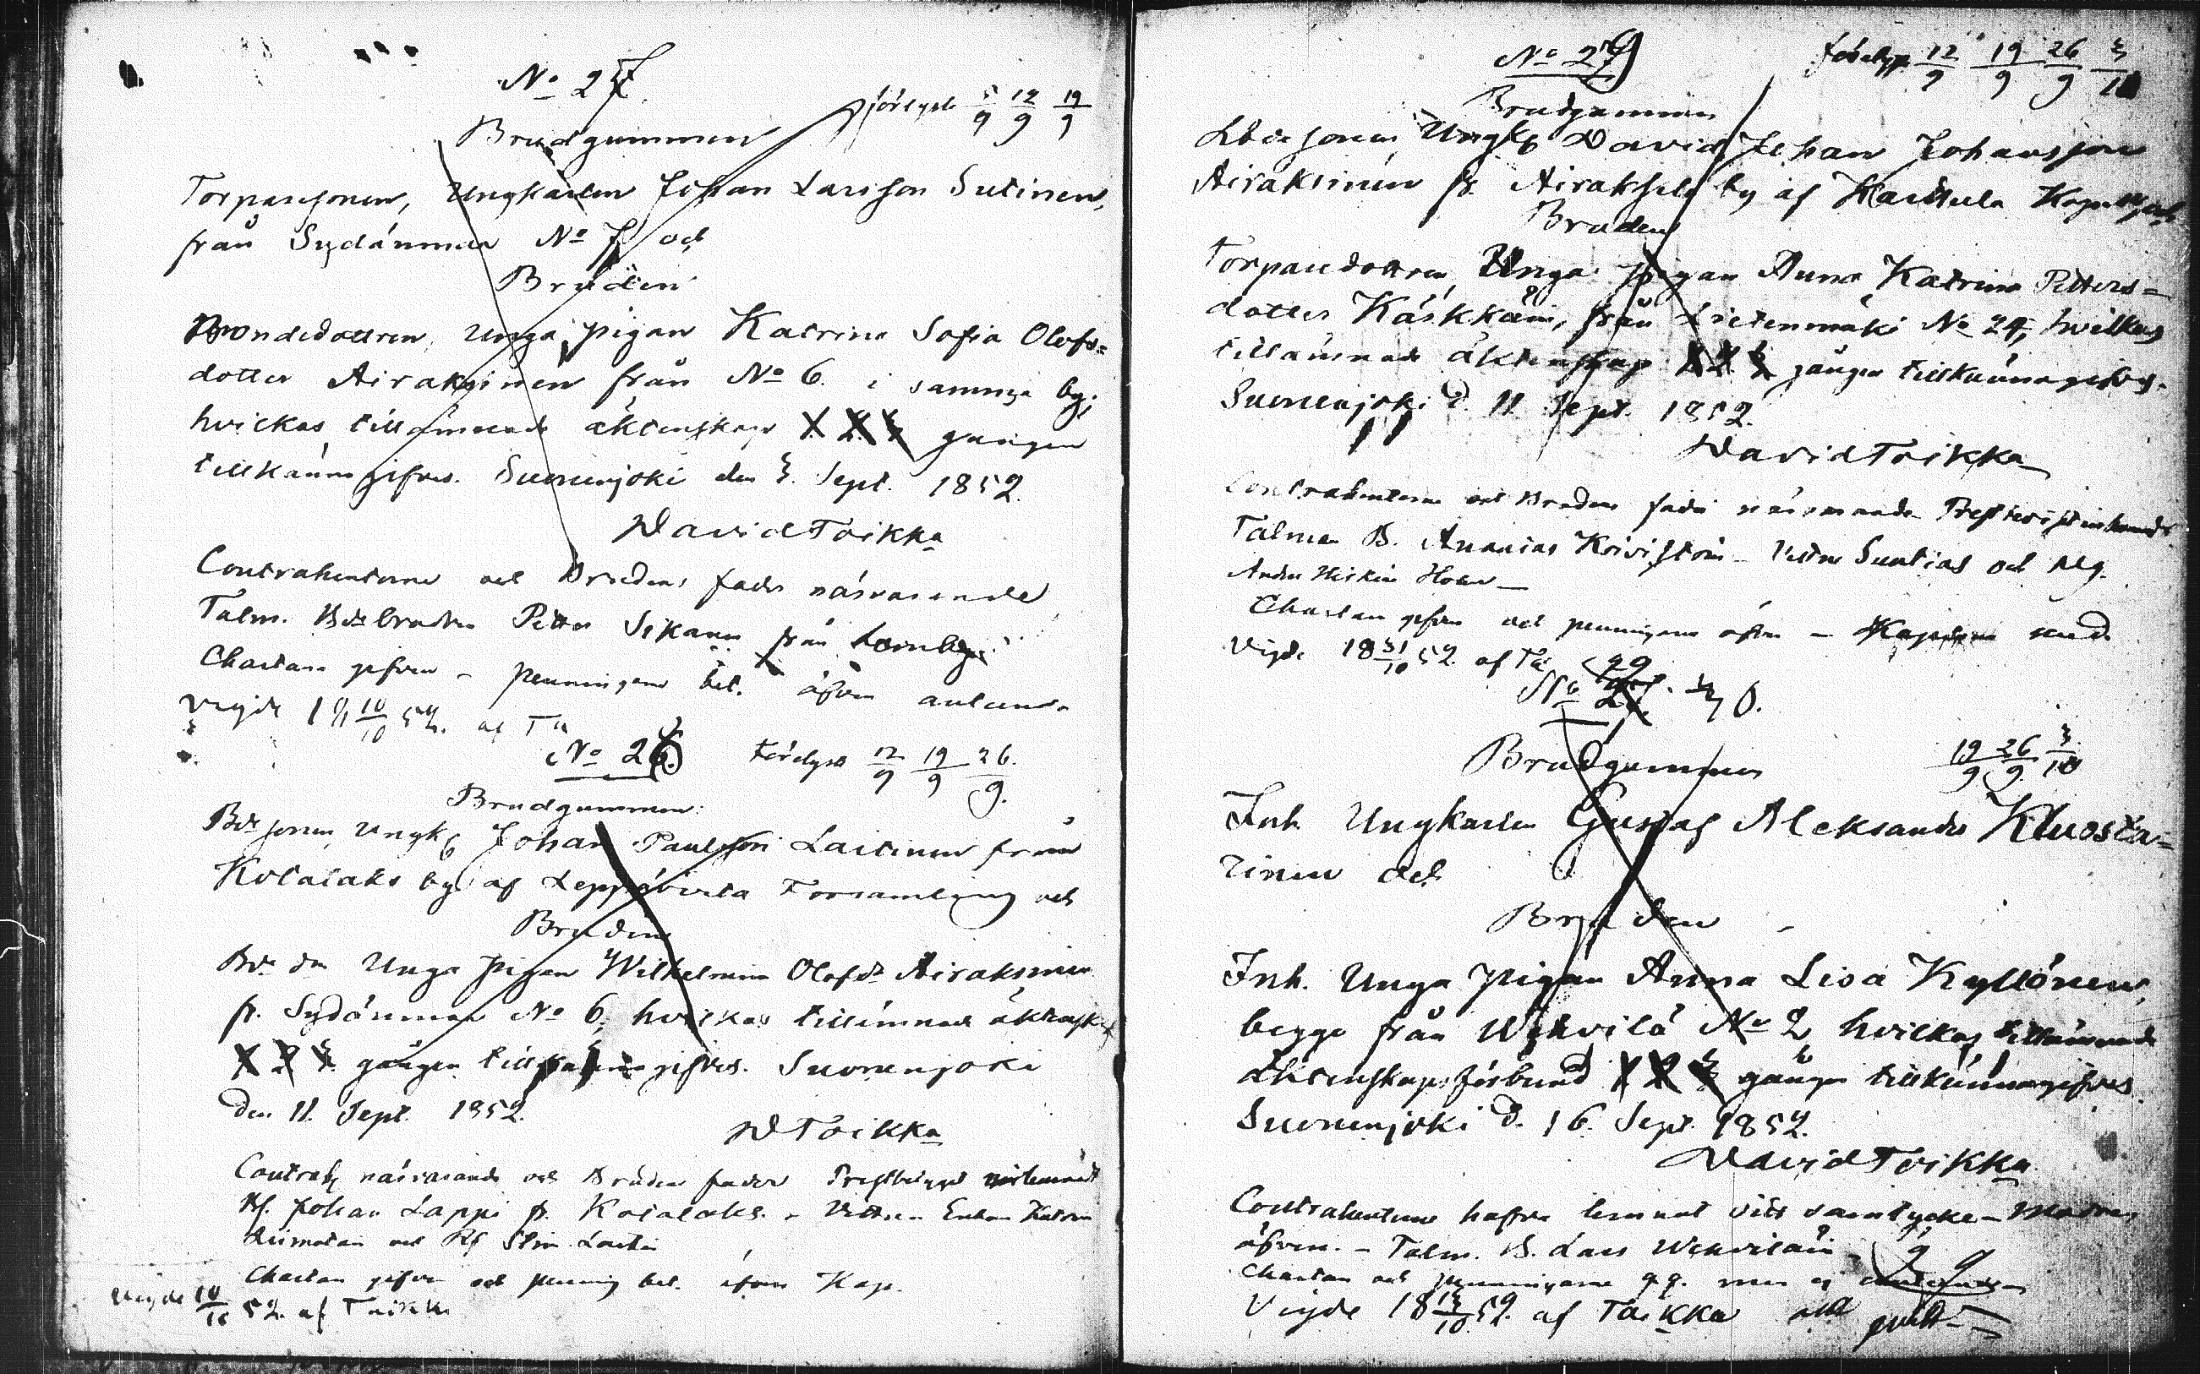 No 27
förlyst 5/9 12/9 19/9
Brudgummen
Torparesonen, Ungkarlen Johan Larsson Sutinen,
från Sydänmaa No 7 och
Bruden
Bondedottren, Unga pigan Katrina Sofia Olofs=
dotter Airaksinen från No 6. i samma by;
hvilkas tillämnade äktenskap 1. 2. 3 gången
tillkännagifves. Suonenjoki den 3. Sept. 1852.
David Toikka
Contrahenterne och Brudens fader närvarande
Talm. Bdebrodren Petter Sikanen från
Chartan gifven – penningene bet. äfven
Vigde 18 10/10 52. af Ta
No 26. Förlyst 12/9 19/9 26/9.
Brudgummen
Bdesonen, Ungk Johan Paulsson Laitinen från
Kotalaks by af Leppävirta Församling och
Bruden
Bde dr Unga pigan Wilhelmina Olofsdr Airaksinen
fr. Sydänmaa No 6, hvilkas tillämnade äktensk
1 2 3 gången tillkännagifves. Suonenjoki
Den 11. Sept. 1852.
D Toikka
Contrah närvarande och Brudens fader
Johan Lappi fr. Kotalaks. –
och
Chartan gifven och penning bet. äfven Kap.
Vigde 10/10 52. af Toikka
No 29
förlyst 12/9 19/9 26/9 3/10
Brudgummen
Bdesonen Ungk David Johan Johansson
Airaksinen fr. Airakselä by af Karttula Kapell, och
Bruden
Torparedottren, Unga pigan Anna Katrina Petters=
dotter Käskkäin, från Lietenmäki No 24, hvilkas
tillämnade äktenskap 1 2 3 gången tillkännagifves.
Suonenjoki d. 11 Sept. 1852.
David Toikka
Contrahenterne och Brudens fader närvarande
Talman B. Ananias Koivistoin –
Chartan gifven och penningene äfven –
Vigde 18 31/10 52. af Ta
No
Brudgummen
19/9 26/9 3/10
Inh. Ungkarlen Gustaf Aleksander Kluosta=
rinen och
Bruden
Inh. Unga pigan Anna Lisa Kyllönen,
begge från Wehvilä No 2, hvilkas tillämnade
Äktenskapsförbund 1 2 3 gången tillkännagifves.
Suonenjoki d. 16. Sept. 1852.
David Toikka
Contrahenterne hafva lemnat sitt samtycke –
äfven. – Talm. B. Lars Wehviläin
Chartan och penningarne
Vigde 18 13/10 52. af Toikka